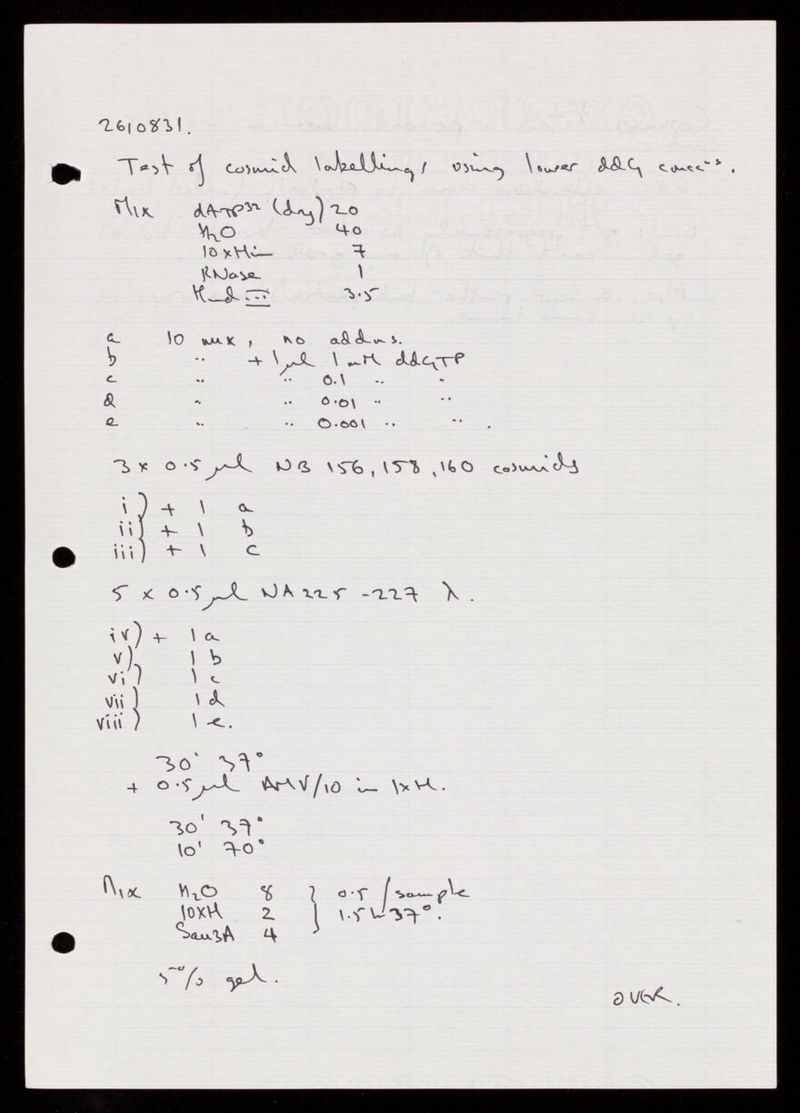 2610831.
Test of cosmid labellings using lower ddG concns.
Mix dATP32 (dry) 20
H2O 40
10xHin 7
RNase 1
Hind III 3.5
a 10 mix, no addns.
b " + 1µl 1 mM ddGTP
c " " 0.1 " "
d " " 0.01 " "
e " " 0.001 " " .
3 x 0.5 µl NB 156, 158, 160 cosmids
i ) + 1 a
ii) + 1 b
iii) + 1 c
5 x 0.5 µl NA 225 - 227 λ.
iv) + 1 a
v) 1 b
vi) 1 c
vii) 1 d
viii) 1 e.
30' 37°
+ 0.5 µl AMV/10 in 1xH.
30' 37°
10' 70°
Mix H2O 8 } 0.5 / sample
10XH 2 } 1.5 h 37°.
Sau3A 4
5% gel.
OVER.